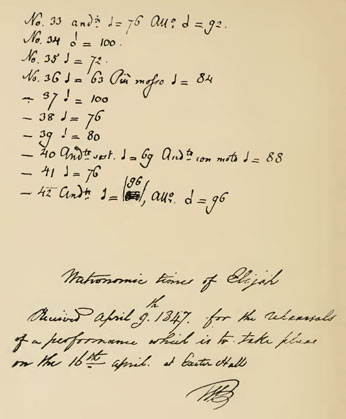 No. 33 andte ♩= 76 Allo. 𝅗𝅥= 92.
No. 34 𝅗𝅥= 100.
No. 35 ♩= 72.
No. 36 ♩= 63 Più mosso ♩= 84
– 37 ♩= 100
– 38 ♩= 76
– 39 ♩= 80
– 40 Andte sost. ♩= 69 Andte con moto ♩= 88
– 41 ♩= 76
– 42 Andte ♩= (96), Allo. 𝅗𝅥= 96
Metronomic times of Elijah
Received April 9th. 1847. for the rehearsals
of a performance which is to take place
on the 16th april. at Exeter Hall